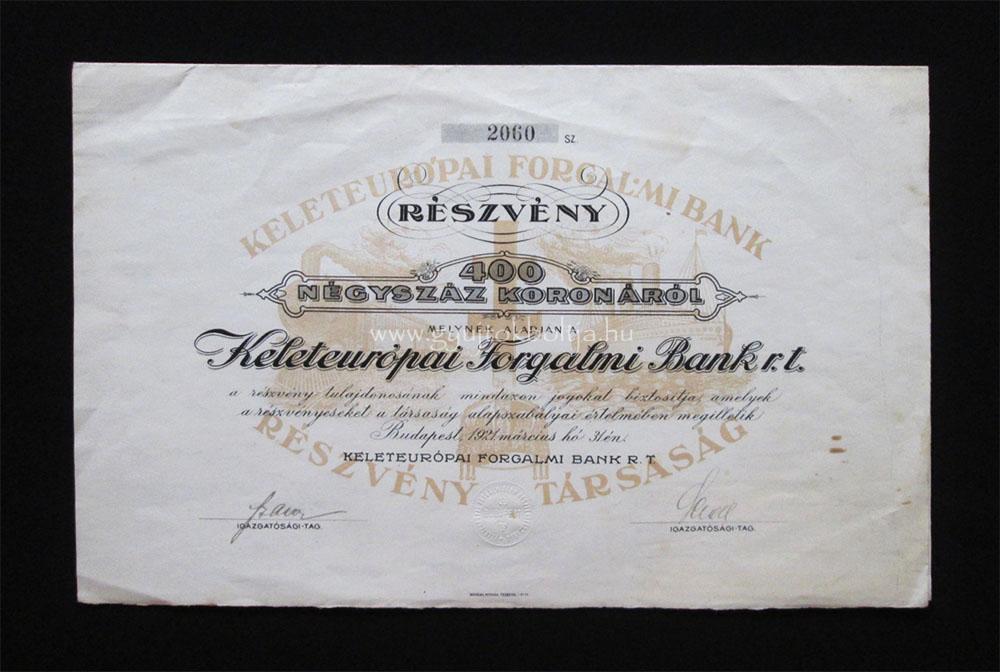 2060 SZ.
KELETEURÓPAI FORGALMI BANK
RÉSZVÉNY
400
NÉGYSZÁZ KORONÁRÓL
MELYNEK ALAPJÁN A
www.gyujtokboltja.hu
Keleteurópai Forgalmi Bank r.t.
a részvény tulajdonosának mindazon jogokat biztosítja, amelyek
a részvényeseket a társaság alapszabályai értelmében megilletik
Budapest, 1921 március hó 31én.
KELETEURÓPAI FORGALMI BANK R.T.
RÉSZVÉNY TÁRSASÁG
IGAZGATÓSÁGI-TAG. IGAZGATÓSÁGI-TAG.